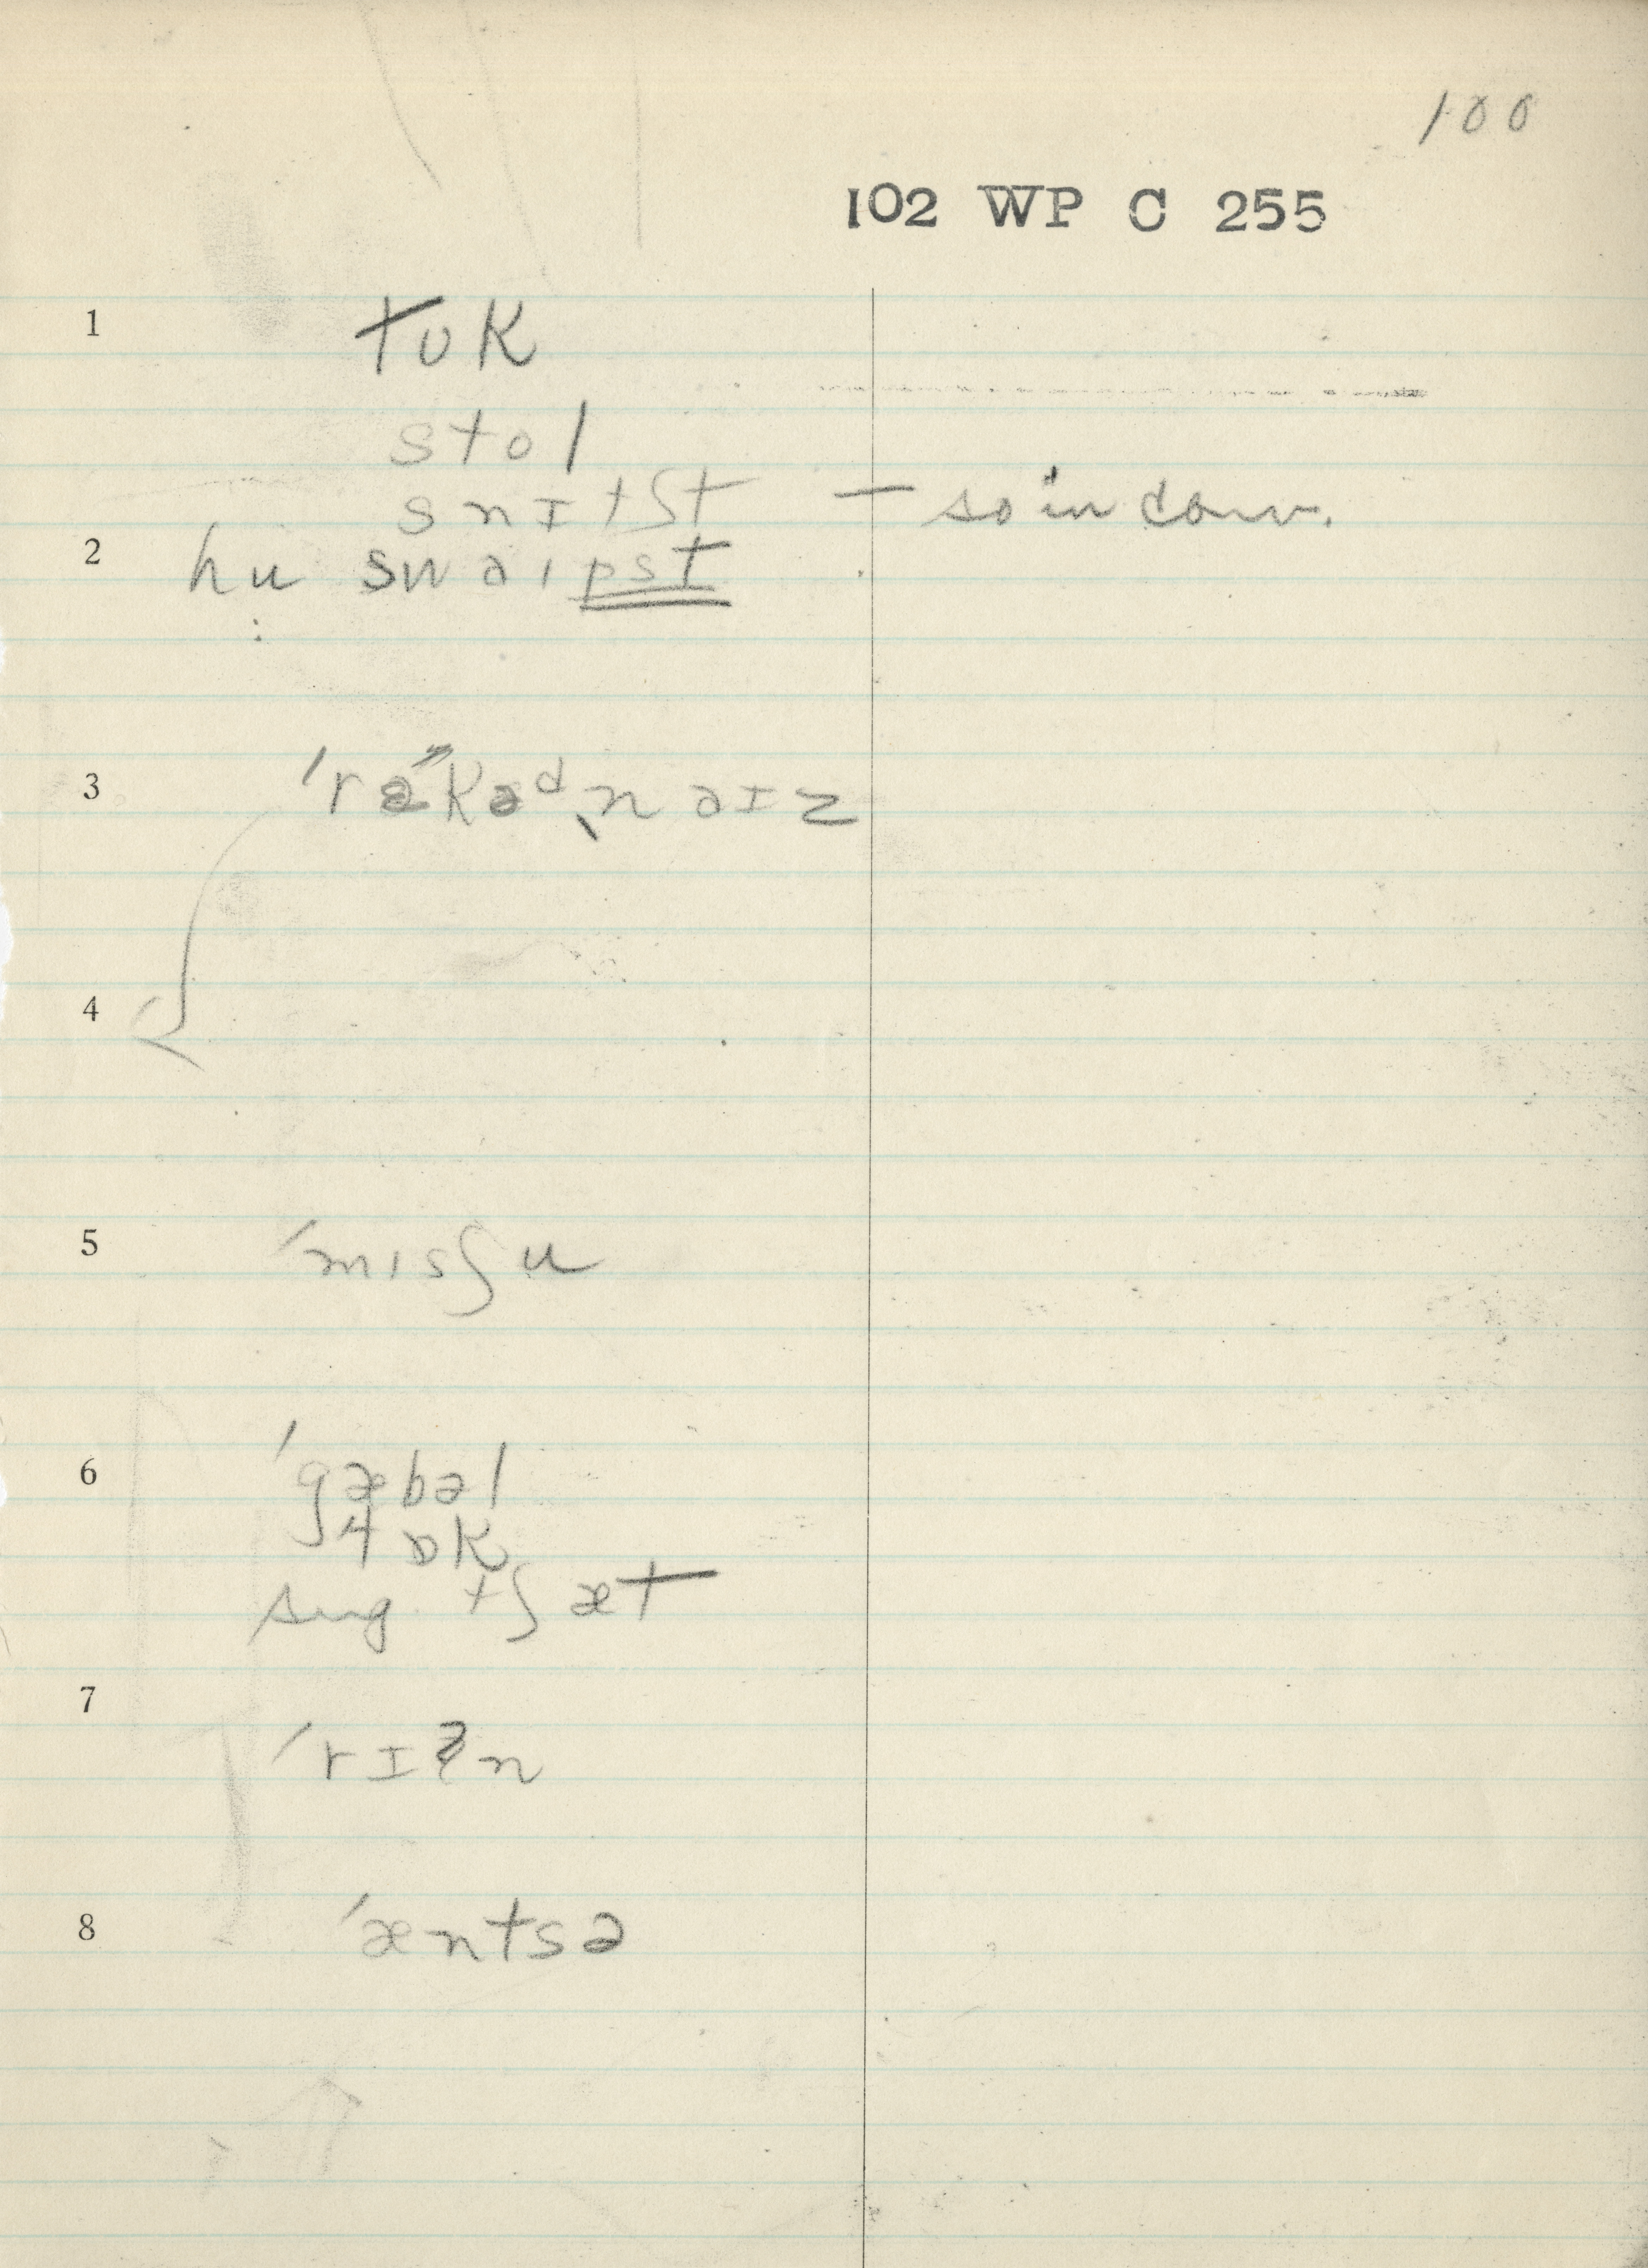 100
102 WP C 255
1 tʊk
stol
snɪtʃt — so in conv.
2 hu swaɪpst
:
3 ˈrɛkəᵈˌnaɪz
4
5 ˈmɪsʃu
6 ˈgæbəl
ɥɒk
sug. tʃæt
7 ˈrɪʔn
8 ˈæntsə